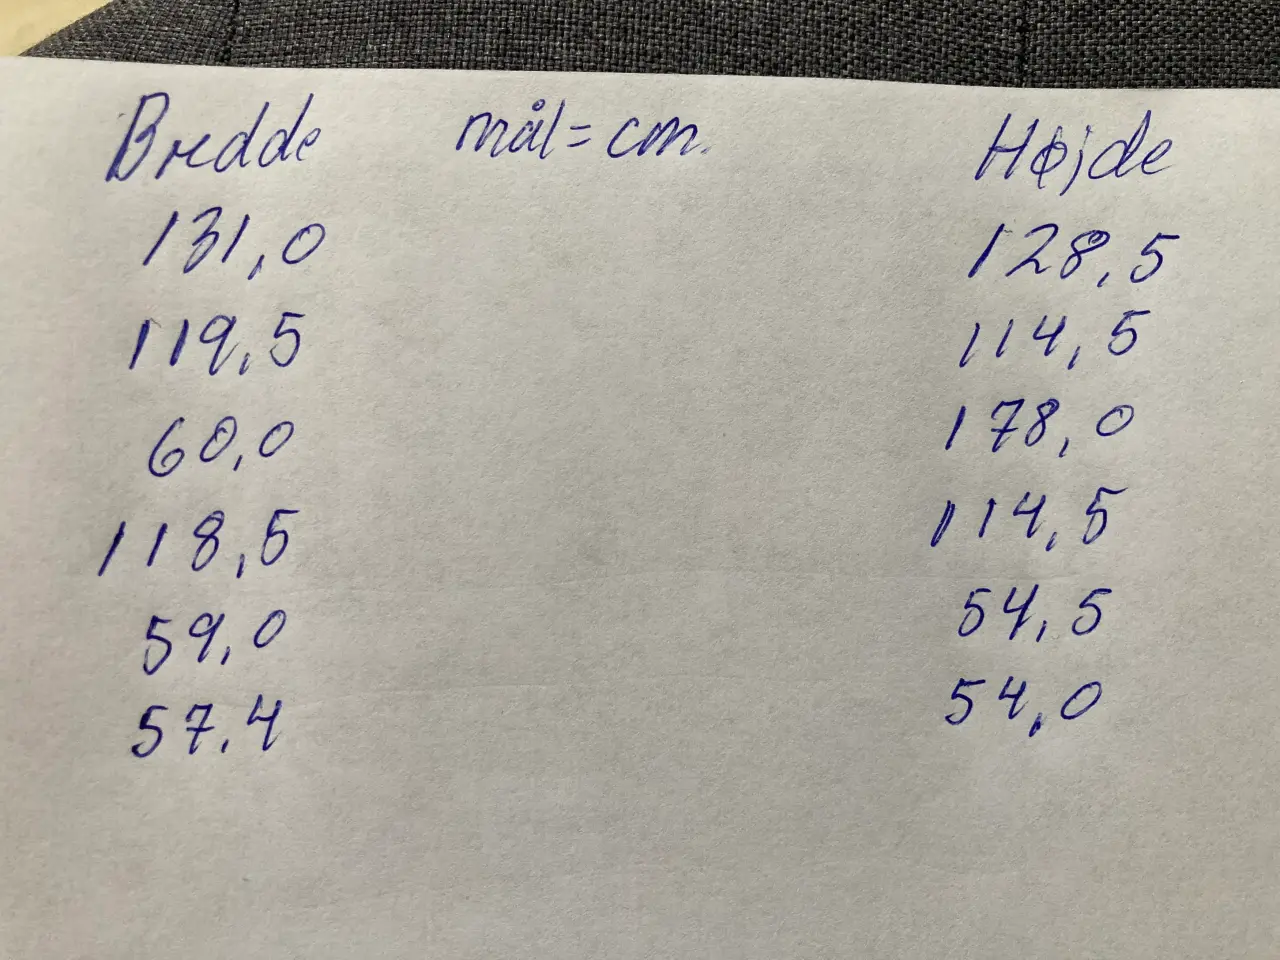 Bredde mål=cm. Højde
131,0 128,5
119,5 114,5
60,0 178,0
118,5 114,5
59,0 54,5
57.4 54,0